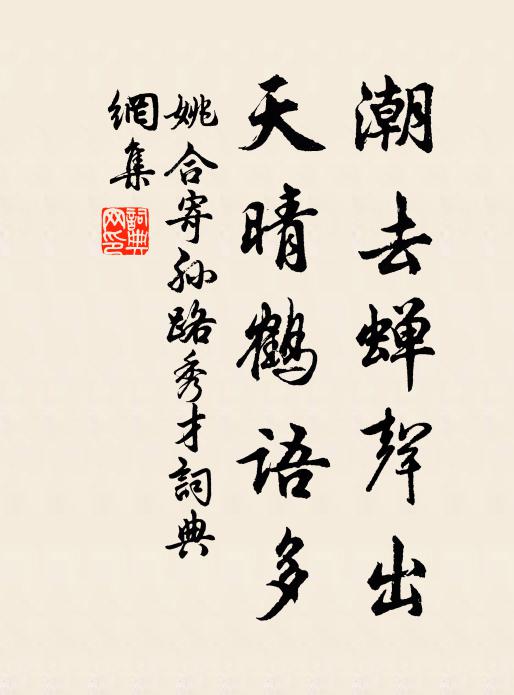 潮去蟬聲出
天晴鶴語多
姚合寄孙路秀才詞典
網集
詞典
网印